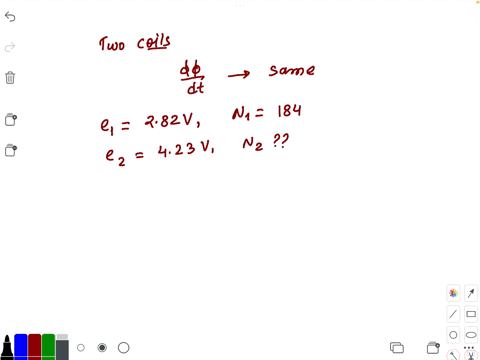 Two coils
dφ/dt → same
e₁ = 2.82 V, N₁ = 184
e₂ = 4.23 V, N₂ ??